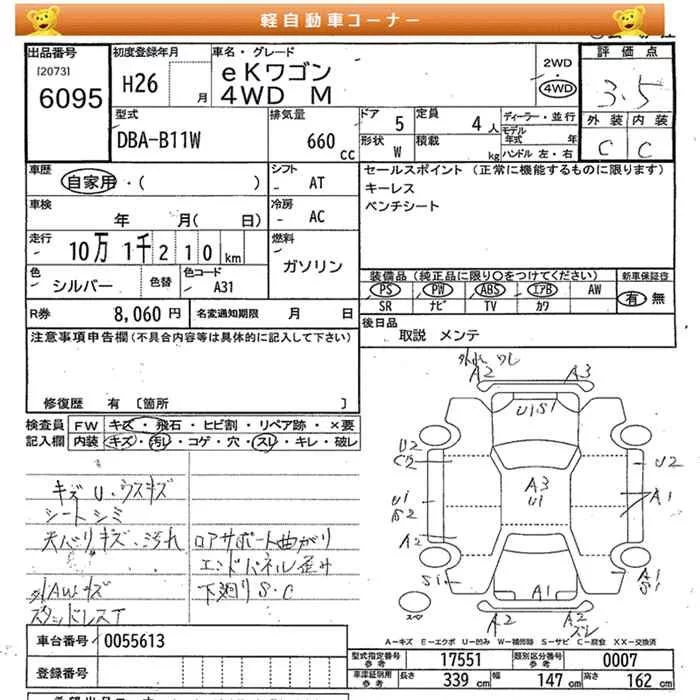 軽自動車コーナー
出品番号 初度登録年月 車名・グレード 評価点
[2073] 6095 H26 月 eKワゴン 2WD・4WD 3.5
4WD M
外装 内装
C C
型式 排気量 ドア 5 定員 4人 ディーラー・並行
DBA-B11W 660cc 形状 W 積載 kg モデル年式 年
ハンドル 左・右
車歴 自家用・( ) シフト - AT セールスポイント (正常に機能するものに限ります)
キーレス
ベンチシート
車検 年 月( 日) 冷房 - AC
走行 10万 1千 2 1 0 km 燃料 - ガソリン
色 シルバー 色替 色コード A31
装備品 (純正品に限り○をつけてください) 新車保証書
PS PW ABS エアB AW 有 無
SR ナビ TV カワ
R券 8,060円 名変通知期限 月 日
後日品 取説 メンテ
注意事項申告欄 (不具合内容等は具体的に記入して下さい)
修復歴 有 [箇所 ]
検査員記入欄 FW キズ・飛石・ヒビ割・リペア跡・×要
内装 キズ・汚レ・コゲ・穴・スレ・キレ・破レ
キズ U・ウスキズ
シートシミ
天バリキズ・汚れ
外AWキズ
スタッドレスT
ロアサポート曲がり
エンドパネル歪み
下廻りS・C
A2 A3
U1S1
U2
U2
A3
U1
U1
S2
A1
A2
S1
A1
A1
S1
スペ
A2 A2
ズレ
A－キズ E－エクボ U－凹み W－補修跡 S－サビ C－腐食 XX－交換済
車台番号 0055613
登録番号
型式指定番号 参考 17551 類別区分番号 参考 0007
車庫証明用 参考 長さ 339 cm 幅 147 cm 高さ 162 cm